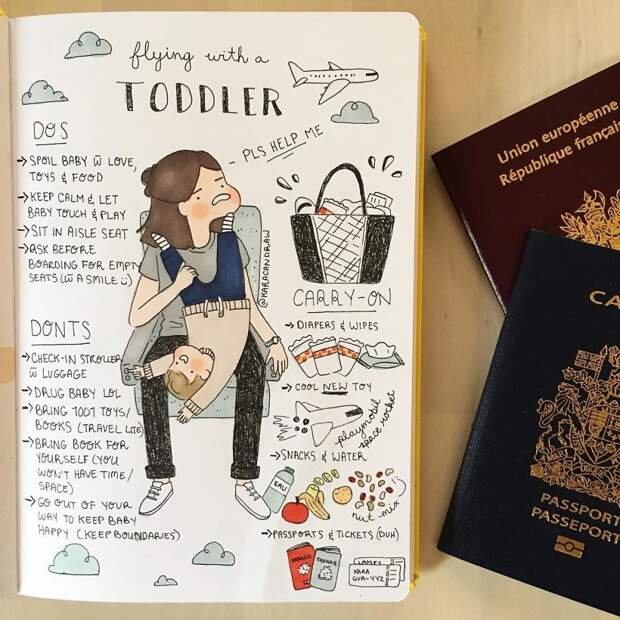 flying with a
TODDLER
- PLS HELP ME
DOS
→ SPOIL BABY W̄ LOVE,
TOYS & FOOD
→ KEEP CALM & LET
BABY TOUCH & PLAY
→ SIT IN AISLE SEAT
→ ASK BEFORE
BOARDING FOR EMPTY
SEATS (W̄ A SMILE :))
DONTS
→ CHECK-IN STROLLER
W̄ LUGGAGE
→ DRUG BABY LOL
→ BRING 1001 TOYS/
BOOKS (TRAVEL LITE)
→ BRING BOOK FOR
YOURSELF (YOU
WON'T HAVE TIME/
SPACE)
→ GO OUT OF YOUR
WAY TO KEEP BABY
HAPPY (KEEP BOUNDARIES)
@KARACANDRAW
CARRY-ON
→ DIAPERS & WIPES
→ COOL NEW TOY
playmobil
space rocket
→ SNACKS & WATER
EAU
nut-mix
→ PASSPORTS & TICKETS (DUH)
FRANCE
CANADA
KARA
GVA-YYZ
Union européenne
République française
CA
PASSPORT
PASSEPORT